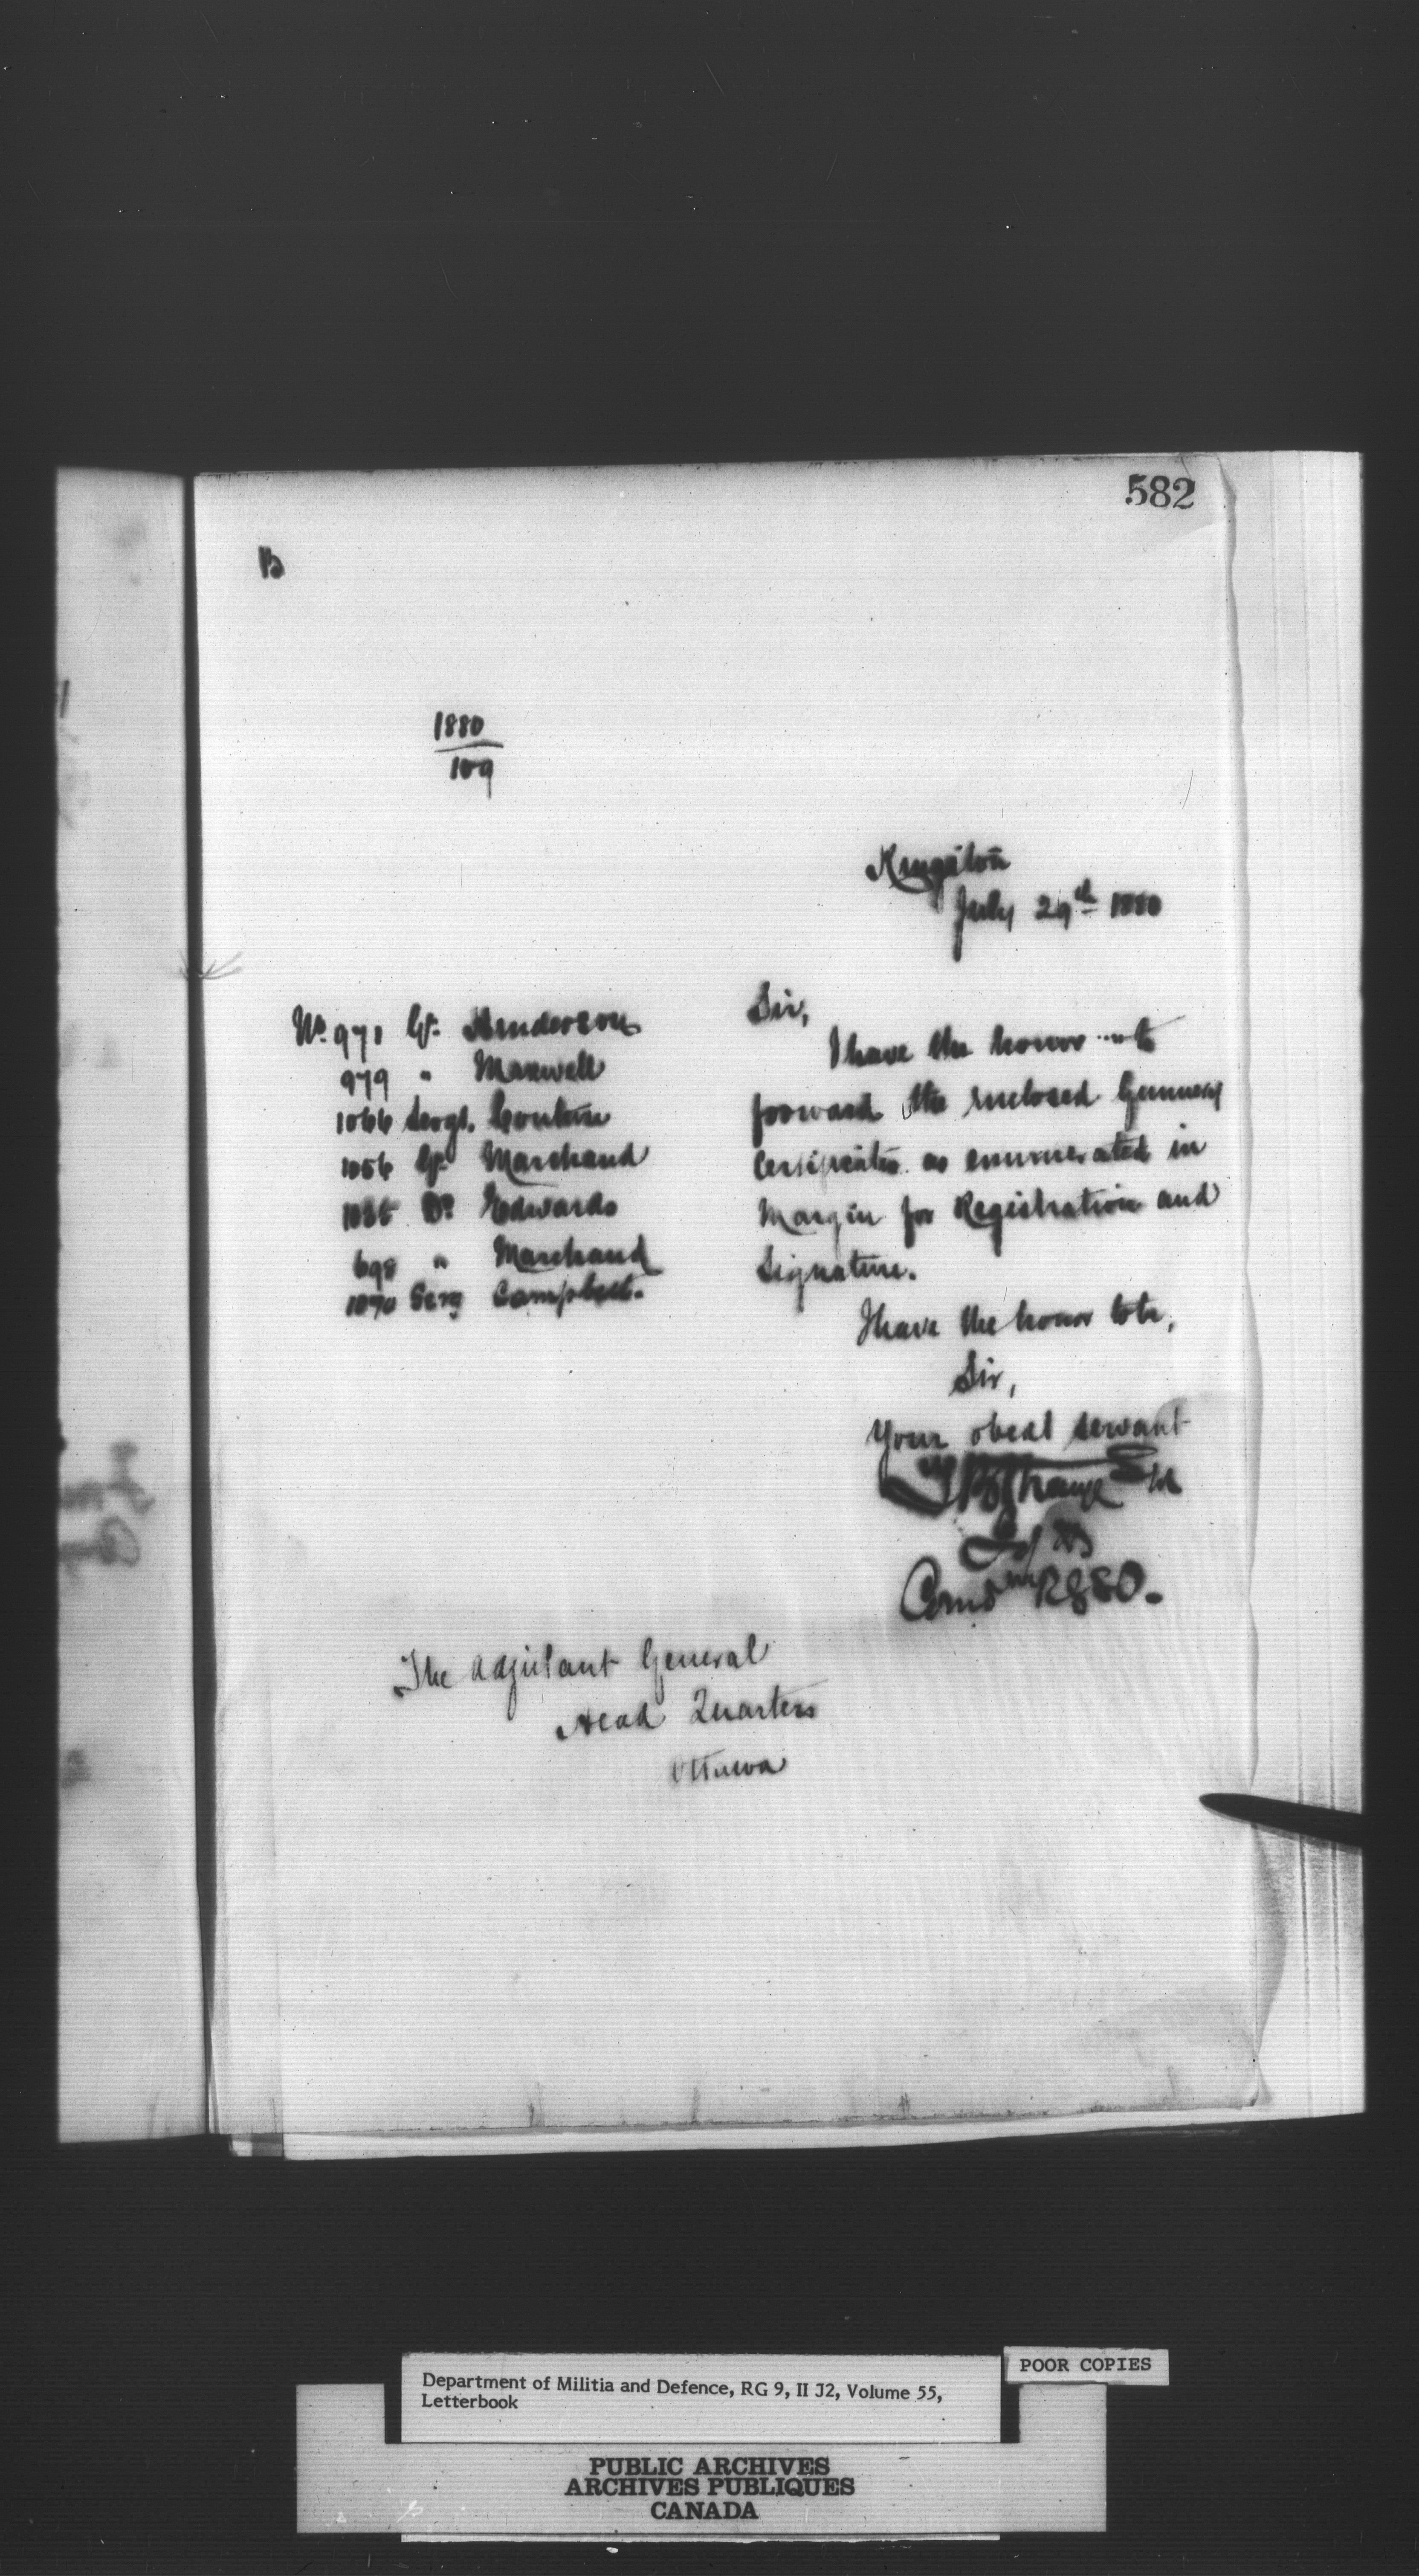 582
B
1880
109
Kingston
July 29th 1880
No. 971 Gr. Henderson
979 " Maxwell
1066 Sergt. Couture
1056 Gr. Marchand
1035 Dr. Edwards
698 " Marchand
1070 Serg Campbell.
Sir,
I have the honor to
forward the enclosed Gunnery
Certificates as enumerated in
Margin for Registration and
Signature.
I have the honor to be,
Sir,
Your obedt servant
TBStrange Lt Col
Comdt RSGO.
The Adjutant General
Head Quarters
Ottawa
POOR COPIES
Department of Militia and Defence, RG 9, II J2, Volume 55,
Letterbook
PUBLIC ARCHIVES
ARCHIVES PUBLIQUES
CANADA